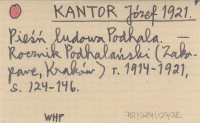 KANTOR Józef 1921.
Pieśń ludowa Podhala. —
Rocznik Podhalański (Zako-
pane, Kraków) r. 1914-1921,
s. 124-146.
WHP